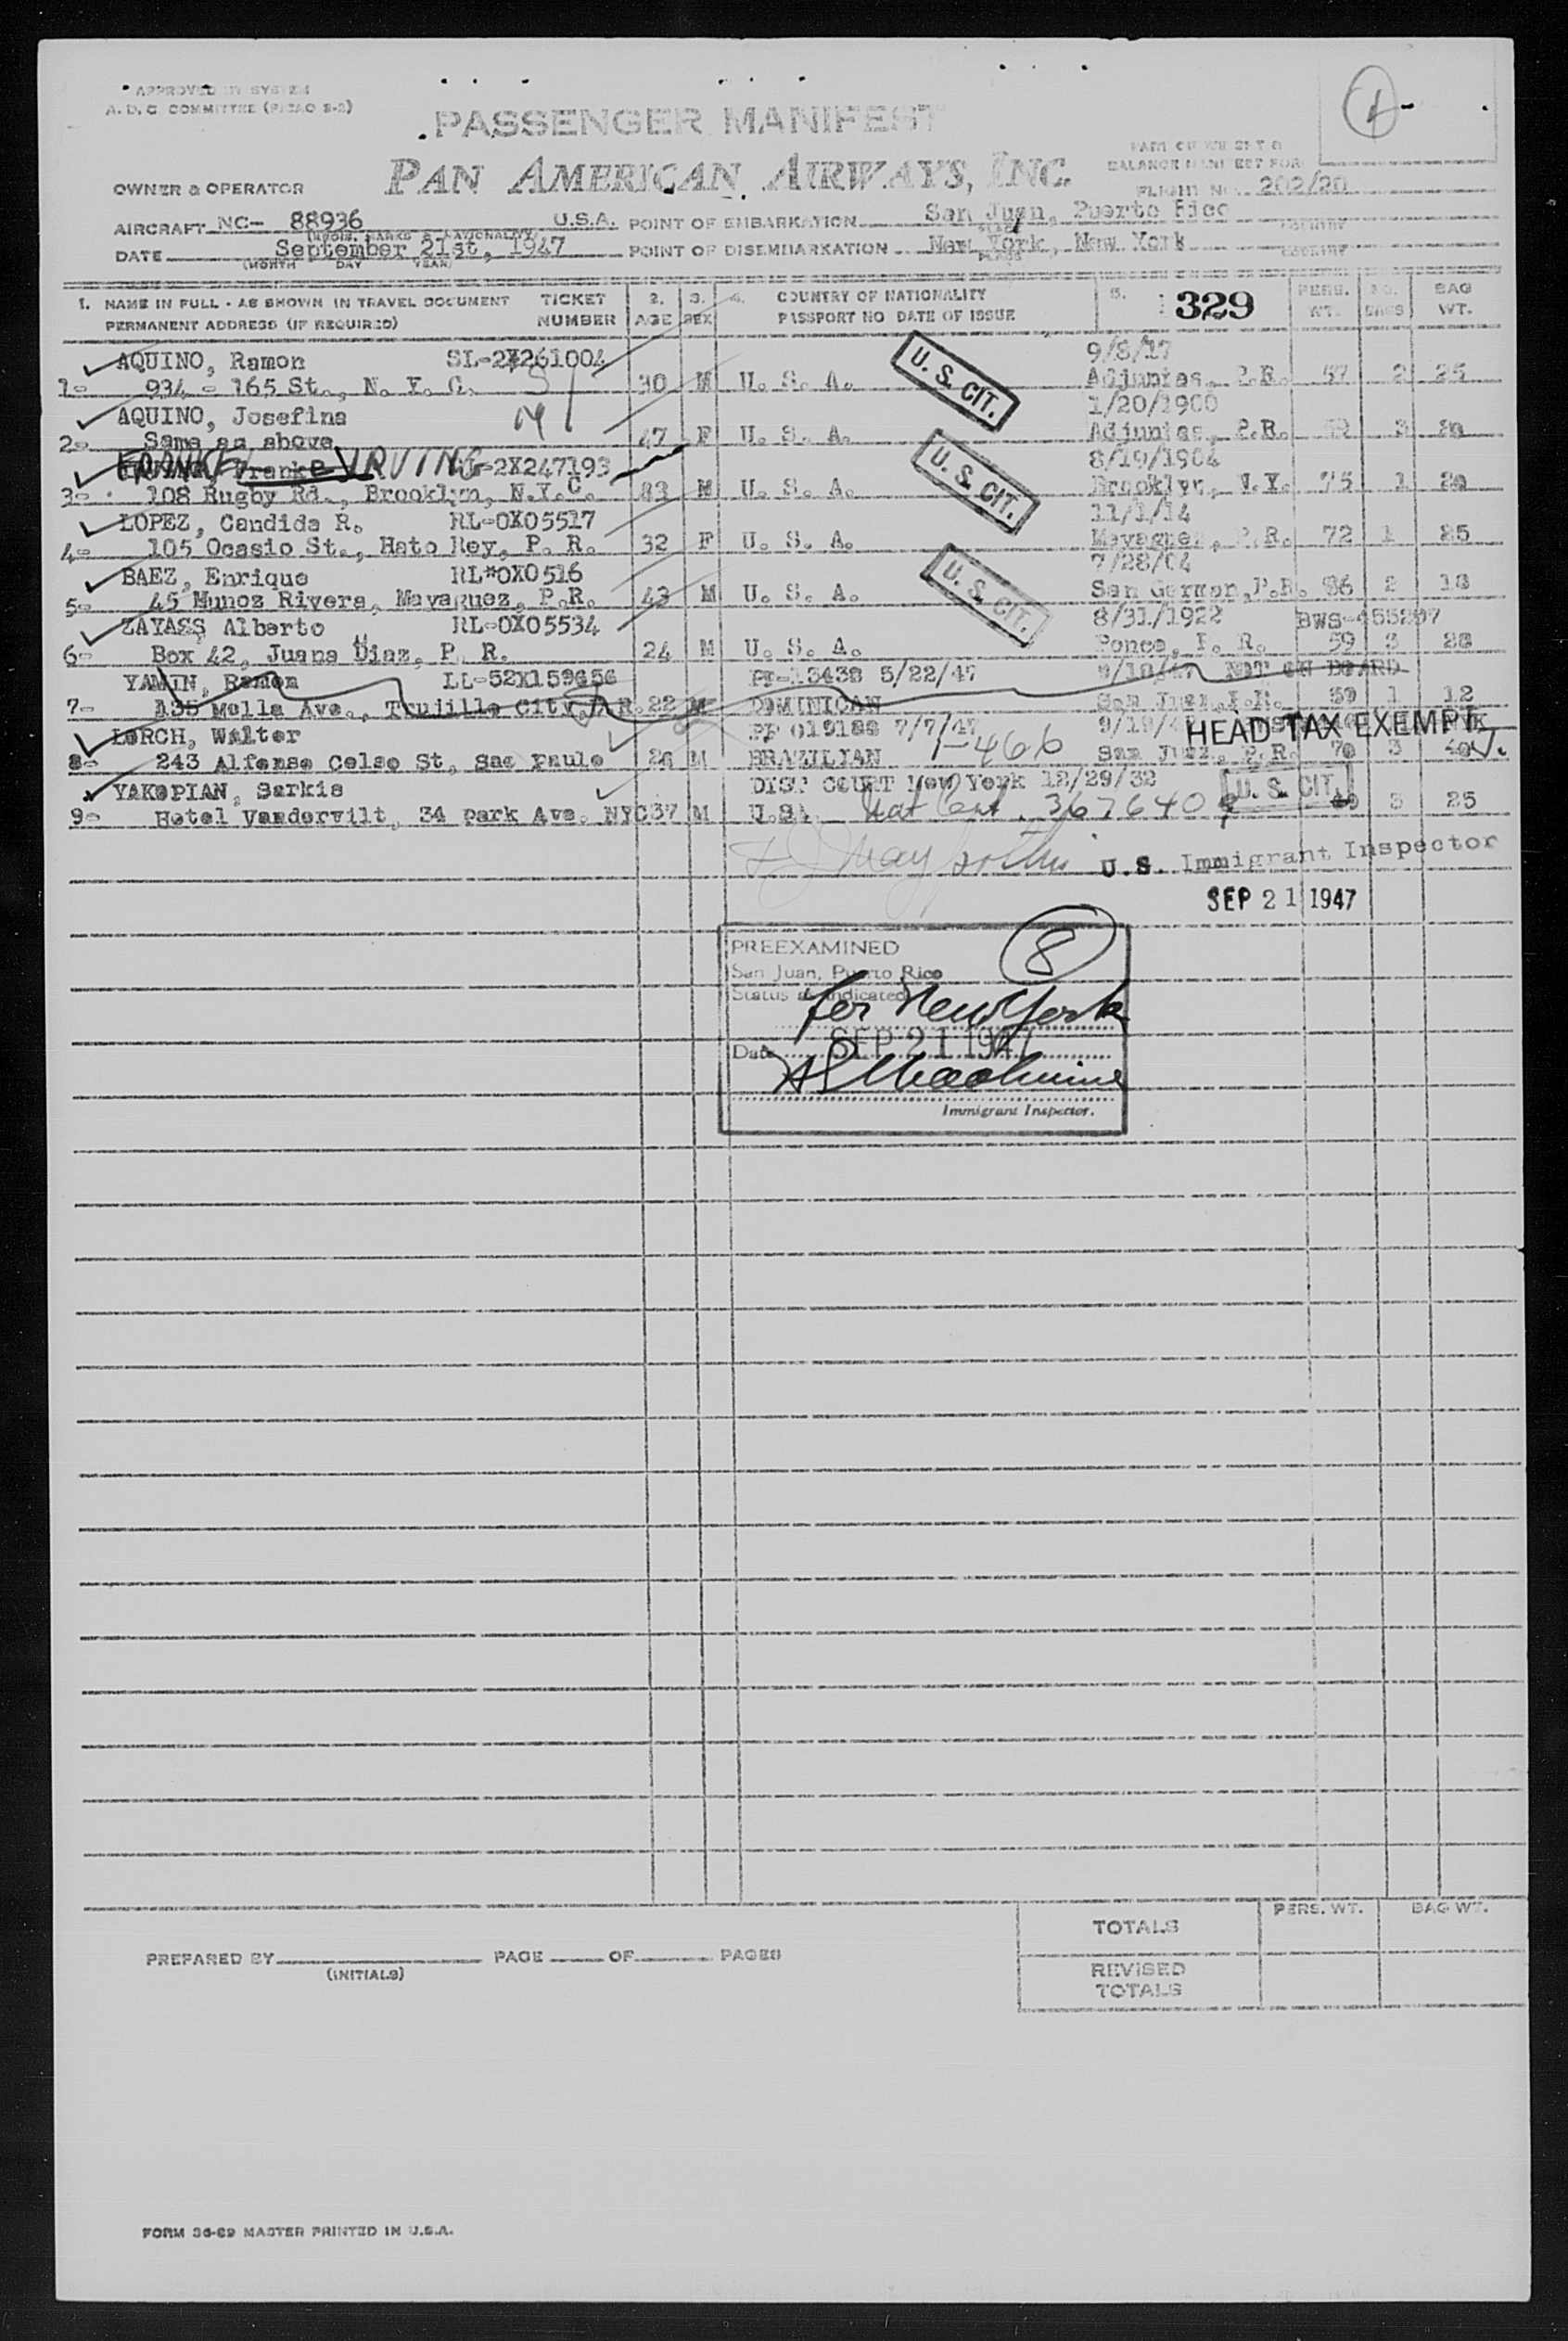 APPROVED BY SYSTEM
A. D. C COMMITTEE (PICAO S-2)
PASSENGER MANIFEST
PAN AMERICAN AIRWAYS, INC.
BALANCE MANIFEST FOR
OWNER & OPERATOR
FLIGHT NO. 202/20
AIRCRAFT NC- 88936 U.S.A. POINT OF EMBARKATION San Juan, Puerto Rico
DATE September 21st, 1947 POINT OF DISEMBARKATION New York, New York
(MONTH DAY YEAR) PLACE COUNTRY
1. NAME IN FULL - AS SHOWN IN TRAVEL DOCUMENT TICKET 2. 3. 4. COUNTRY OF NATIONALITY 5. 329 PERS. NO. BAG
PERMANENT ADDRESS (IF REQUIRED) NUMBER AGE SEX PASSPORT NO DATE OF ISSUE WT. BAGS WT.
AQUINO, Ramon SL-2X261004 9/8/17
1- 934 - 165 St., N. Y. C. 30 M U. S. A. U. S. CIT. Adjuntas, P.R. 57 2 25
AQUINO, Josefina 1/20/1900
2- Same as above 47 F U. S. A. Adjuntas, P.R. 3
FRANKEL IRVING 2X247193 U. S. CIT. 8/19/1904
3- 108 Rugby Rd., Brooklyn, N.Y.C. 83 M U. S. A. Brooklyn, N.Y. 75 1
LOPEZ, Candida R. RL-0X05517 11/1/14
4- 105 Ocasio St., Hato Rey, P. R. 32 F U. S. A. Mayaguez, P.R. 72 1 25
BAEZ, Enrique RL*0X0516 U. S. CIT. 7/28/04
5- 45 Munoz Rivera, Mayaguez, P.R. 43 M U. S. A. San German, P.R. 86 2 18
ZAYASS Alberto RL-0X05534 8/31/1922 BWS-455297
6- Box 42, Juana Diaz, P. R. 24 M U. S. A. Ponce, P. R. 59 3 28
YAMIN, Ramon LL-52X159656 PP-13438 5/22/47 9/18/47 NOT ON BOARD
7- 135 Mella Ave., Trujillo City, D.R. 22 M DOMINICAN San Juan, P.R. 59 1 12
LORCH, Walter PP 019188 7/7/47 1-466 HEAD TAX EXEMPT
8- 243 Alfonso Celso St, Sao Paulo 26 M BRAZILIAN San Juan, P.R. 70 3
YAKOPIAN, Sarkis DIST COURT New York 12/29/32 U. S. CIT.
9- Hotel Vandervilt, 34 park Ave. NYC 37 M U.S. Nat Cert. 3676404 3 25
U.S. Immigrant Inspector
SEP 21 1947
PREEXAMINED 8
San Juan, Puerto Rico
Status as indicated
for New York
Date SEP 21 1947
Immigrant Inspector.
PERS. WT. BAG WT.
TOTALS
PREPARED BY PAGE OF PAGES
(INITIALS)
REVISED
TOTALS
FORM 36-69 MASTER PRINTED IN U.S.A.